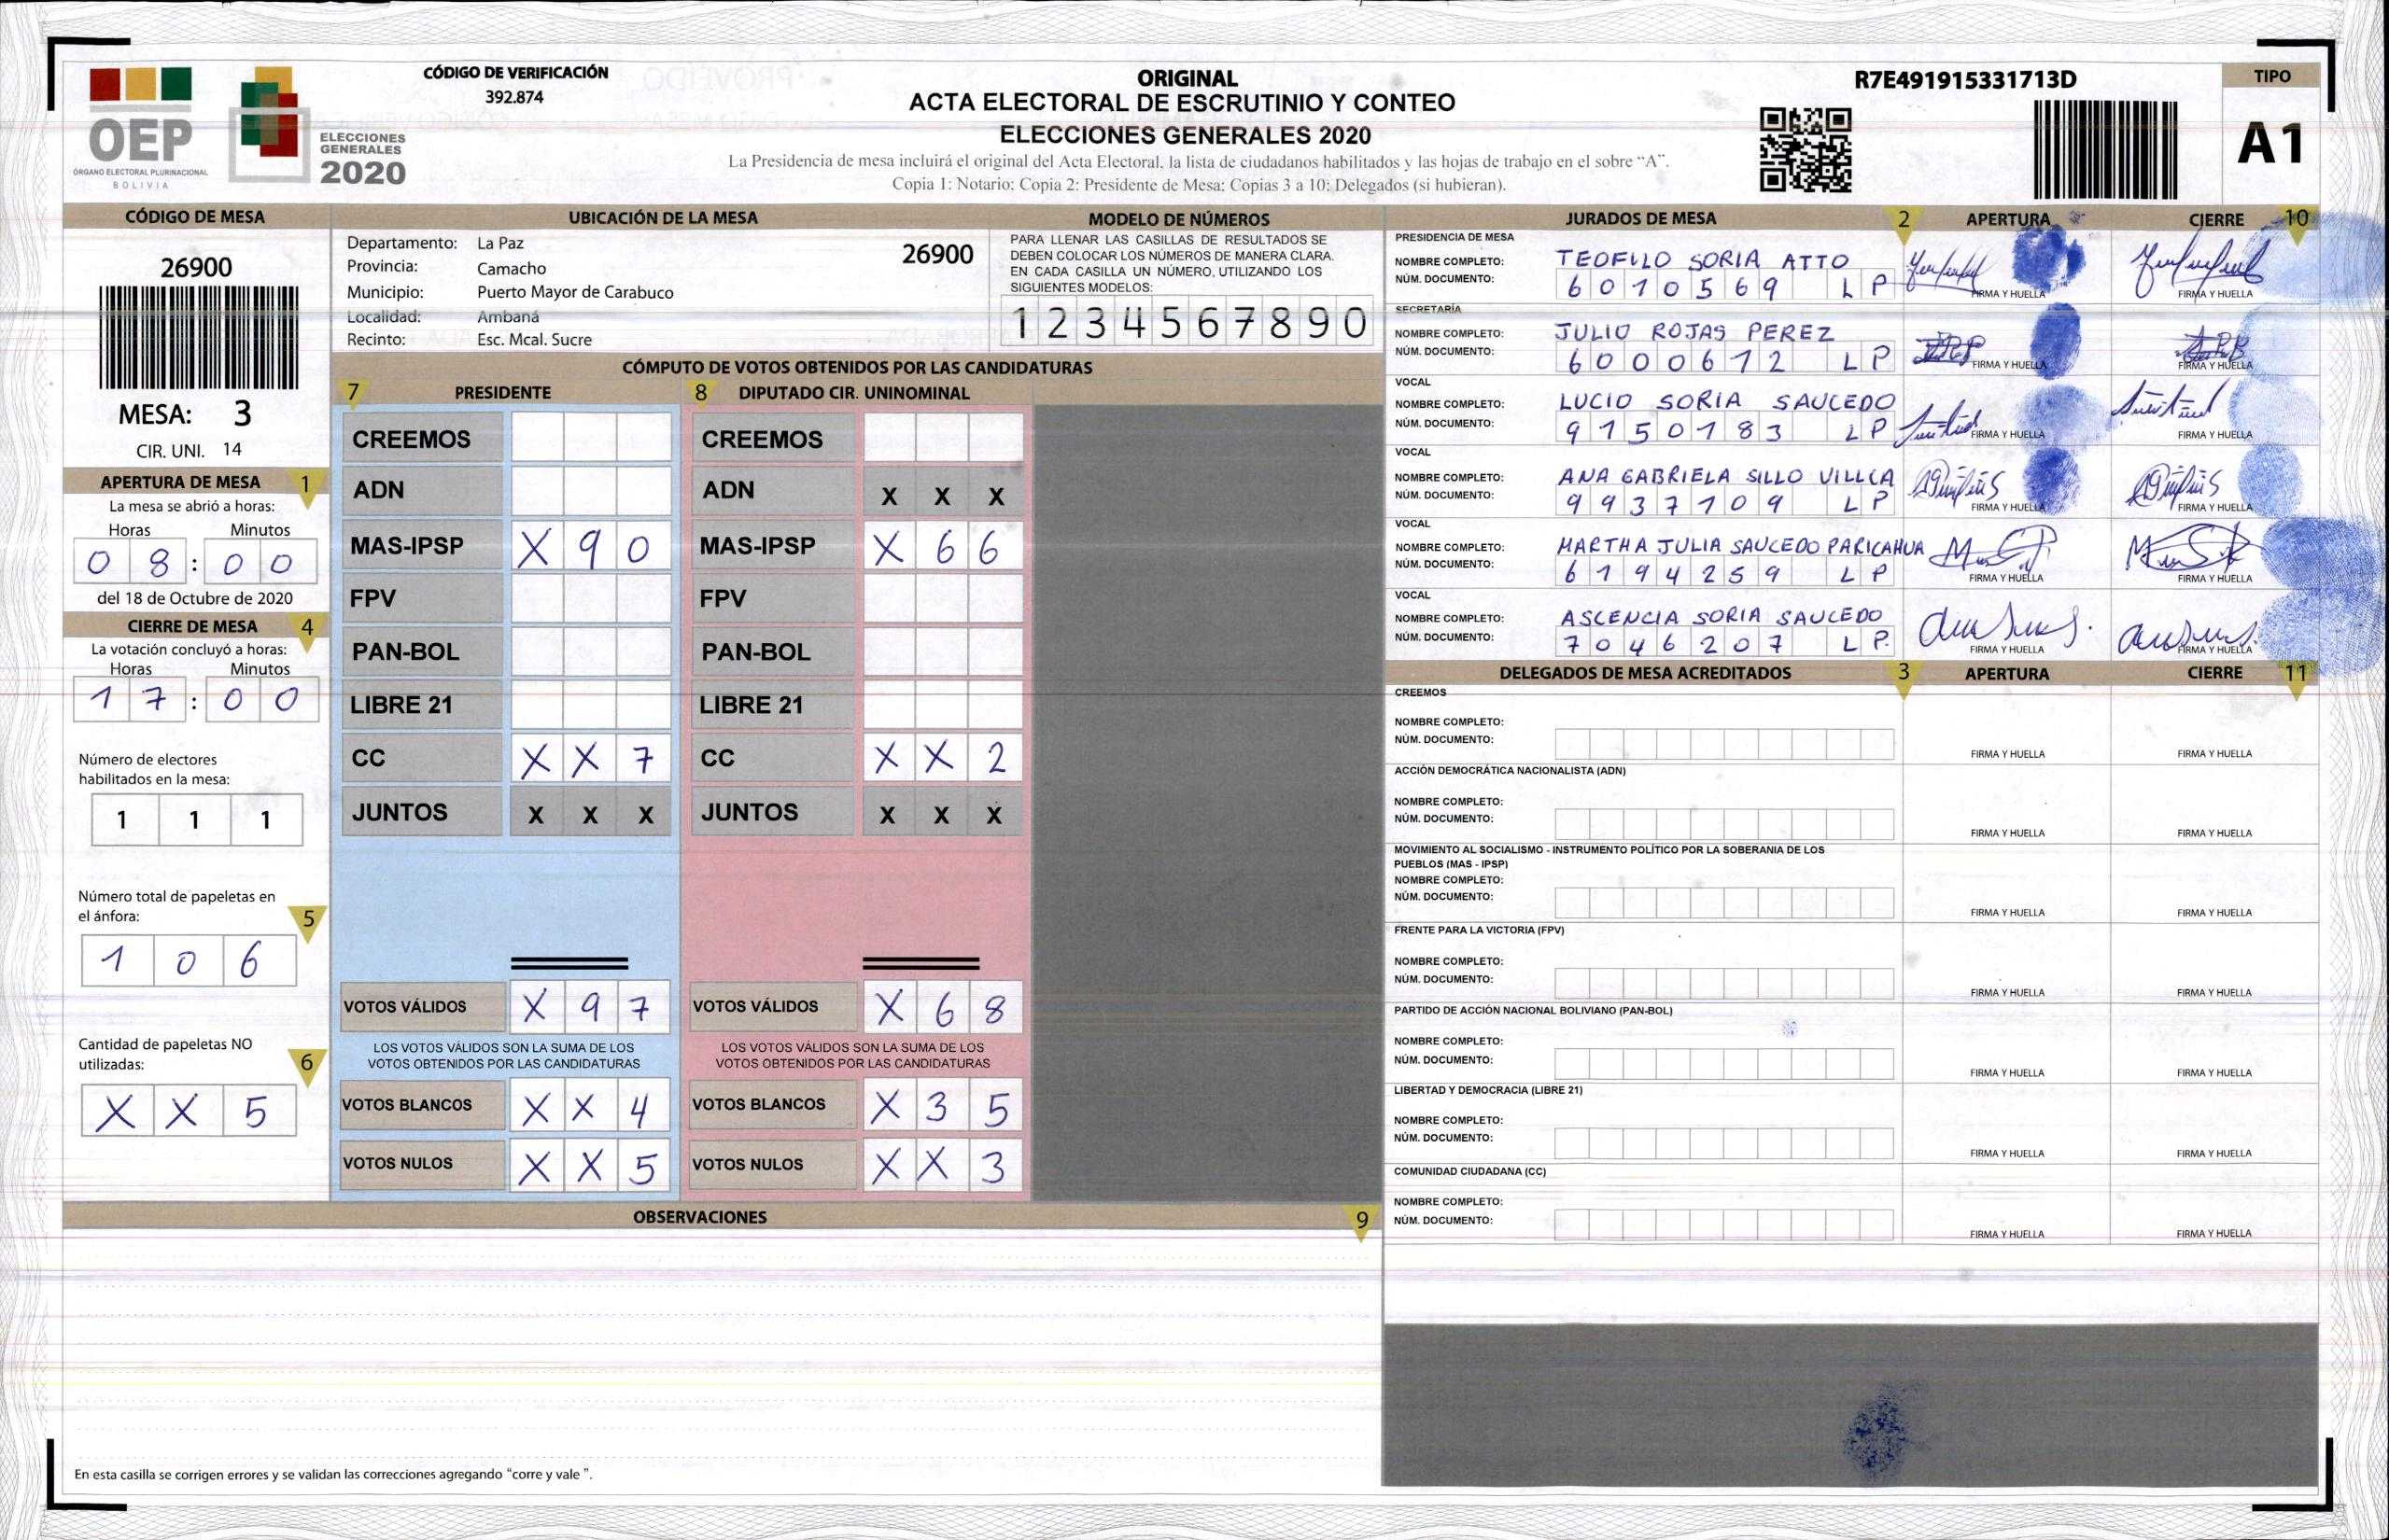 OEP
ÓRGANO ELECTORAL PLURINACIONAL
BOLIVIA
ELECCIONES
GENERALES
2020
CÓDIGO DE VERIFICACIÓN
392.874
ORIGINAL
ACTA ELECTORAL DE ESCRUTINIO Y CONTEO
ELECCIONES GENERALES 2020
La Presidencia de mesa incluirá el original del Acta Electoral, la lista de ciudadanos habilitados y las hojas de trabajo en el sobre "A".
Copia 1: Notario; Copia 2: Presidente de Mesa; Copias 3 a 10: Delegados (si hubieran).
R7E491915331713D
TIPO
A1
CÓDIGO DE MESA
26900
MESA: 3
CIR. UNI. 14
APERTURA DE MESA 1
La mesa se abrió a horas:
Horas Minutos
0 8 : 0 0
del 18 de Octubre de 2020
CIERRE DE MESA 4
La votación concluyó a horas:
Horas Minutos
1 7 : 0 0
Número de electores
habilitados en la mesa:
1 1 1
Número total de papeletas en
el ánfora: 5
1 0 6
Cantidad de papeletas NO
utilizadas: 6
X X 5
UBICACIÓN DE LA MESA
Departamento: La Paz 26900
Provincia: Camacho
Municipio: Puerto Mayor de Carabuco
Localidad: Ambaná
Recinto: Esc. Mcal. Sucre
MODELO DE NÚMEROS
PARA LLENAR LAS CASILLAS DE RESULTADOS SE
DEBEN COLOCAR LOS NÚMEROS DE MANERA CLARA.
EN CADA CASILLA UN NÚMERO, UTILIZANDO LOS
SIGUIENTES MODELOS:
1 2 3 4 5 6 7 8 9 0
CÓMPUTO DE VOTOS OBTENIDOS POR LAS CANDIDATURAS
7 PRESIDENTE 8 DIPUTADO CIR. UNINOMINAL
CREEMOS CREEMOS
ADN ADN X X X
MAS-IPSP X 9 0 MAS-IPSP X 6 6
FPV FPV
PAN-BOL PAN-BOL
LIBRE 21 LIBRE 21
CC X X 7 CC X X 2
JUNTOS X X X JUNTOS X X X
VOTOS VÁLIDOS X 9 7 VOTOS VÁLIDOS X 6 8
LOS VOTOS VÁLIDOS SON LA SUMA DE LOS LOS VOTOS VÁLIDOS SON LA SUMA DE LOS
VOTOS OBTENIDOS POR LAS CANDIDATURAS VOTOS OBTENIDOS POR LAS CANDIDATURAS
VOTOS BLANCOS X X 4 VOTOS BLANCOS X 3 5
VOTOS NULOS X X 5 VOTOS NULOS X X 3
OBSERVACIONES 9
En esta casilla se corrigen errores y se validan las correcciones agregando "corre y vale ".
JURADOS DE MESA 2 APERTURA CIERRE 10
PRESIDENCIA DE MESA
NOMBRE COMPLETO: TEOFILO SORIA ATTO
NÚM. DOCUMENTO: 6 0 1 0 5 6 9 L P FIRMA Y HUELLA FIRMA Y HUELLA
SECRETARÍA
NOMBRE COMPLETO: JULIO ROJAS PEREZ
NÚM. DOCUMENTO: 6 0 0 0 6 1 2 L P FIRMA Y HUELLA FIRMA Y HUELLA
VOCAL
NOMBRE COMPLETO: LUCIO SORIA SAUCEDO
NÚM. DOCUMENTO: 9 1 5 0 1 8 3 L P FIRMA Y HUELLA FIRMA Y HUELLA
VOCAL
NOMBRE COMPLETO: ANA GABRIELA SILLO VILLCA
NÚM. DOCUMENTO: 9 9 3 7 1 0 9 L P FIRMA Y HUELLA FIRMA Y HUELLA
VOCAL
NOMBRE COMPLETO: MARTHA JULIA SAUCEDO PARICAHUA
NÚM. DOCUMENTO: 6 1 9 4 2 5 9 L P FIRMA Y HUELLA FIRMA Y HUELLA
VOCAL
NOMBRE COMPLETO: ASCENCIA SORIA SAUCEDO
NÚM. DOCUMENTO: 7 0 4 6 2 0 7 L P. FIRMA Y HUELLA FIRMA Y HUELLA
DELEGADOS DE MESA ACREDITADOS 3 APERTURA CIERRE 11
CREEMOS
NOMBRE COMPLETO:
NÚM. DOCUMENTO: FIRMA Y HUELLA FIRMA Y HUELLA
ACCIÓN DEMOCRÁTICA NACIONALISTA (ADN)
NOMBRE COMPLETO:
NÚM. DOCUMENTO: FIRMA Y HUELLA FIRMA Y HUELLA
MOVIMIENTO AL SOCIALISMO - INSTRUMENTO POLÍTICO POR LA SOBERANIA DE LOS
PUEBLOS (MAS - IPSP)
NOMBRE COMPLETO:
NÚM. DOCUMENTO: FIRMA Y HUELLA FIRMA Y HUELLA
FRENTE PARA LA VICTORIA (FPV)
NOMBRE COMPLETO:
NÚM. DOCUMENTO: FIRMA Y HUELLA FIRMA Y HUELLA
PARTIDO DE ACCIÓN NACIONAL BOLIVIANO (PAN-BOL)
NOMBRE COMPLETO:
NÚM. DOCUMENTO: FIRMA Y HUELLA FIRMA Y HUELLA
LIBERTAD Y DEMOCRACIA (LIBRE 21)
NOMBRE COMPLETO:
NÚM. DOCUMENTO: FIRMA Y HUELLA FIRMA Y HUELLA
COMUNIDAD CIUDADANA (CC)
NOMBRE COMPLETO:
NÚM. DOCUMENTO: FIRMA Y HUELLA FIRMA Y HUELLA